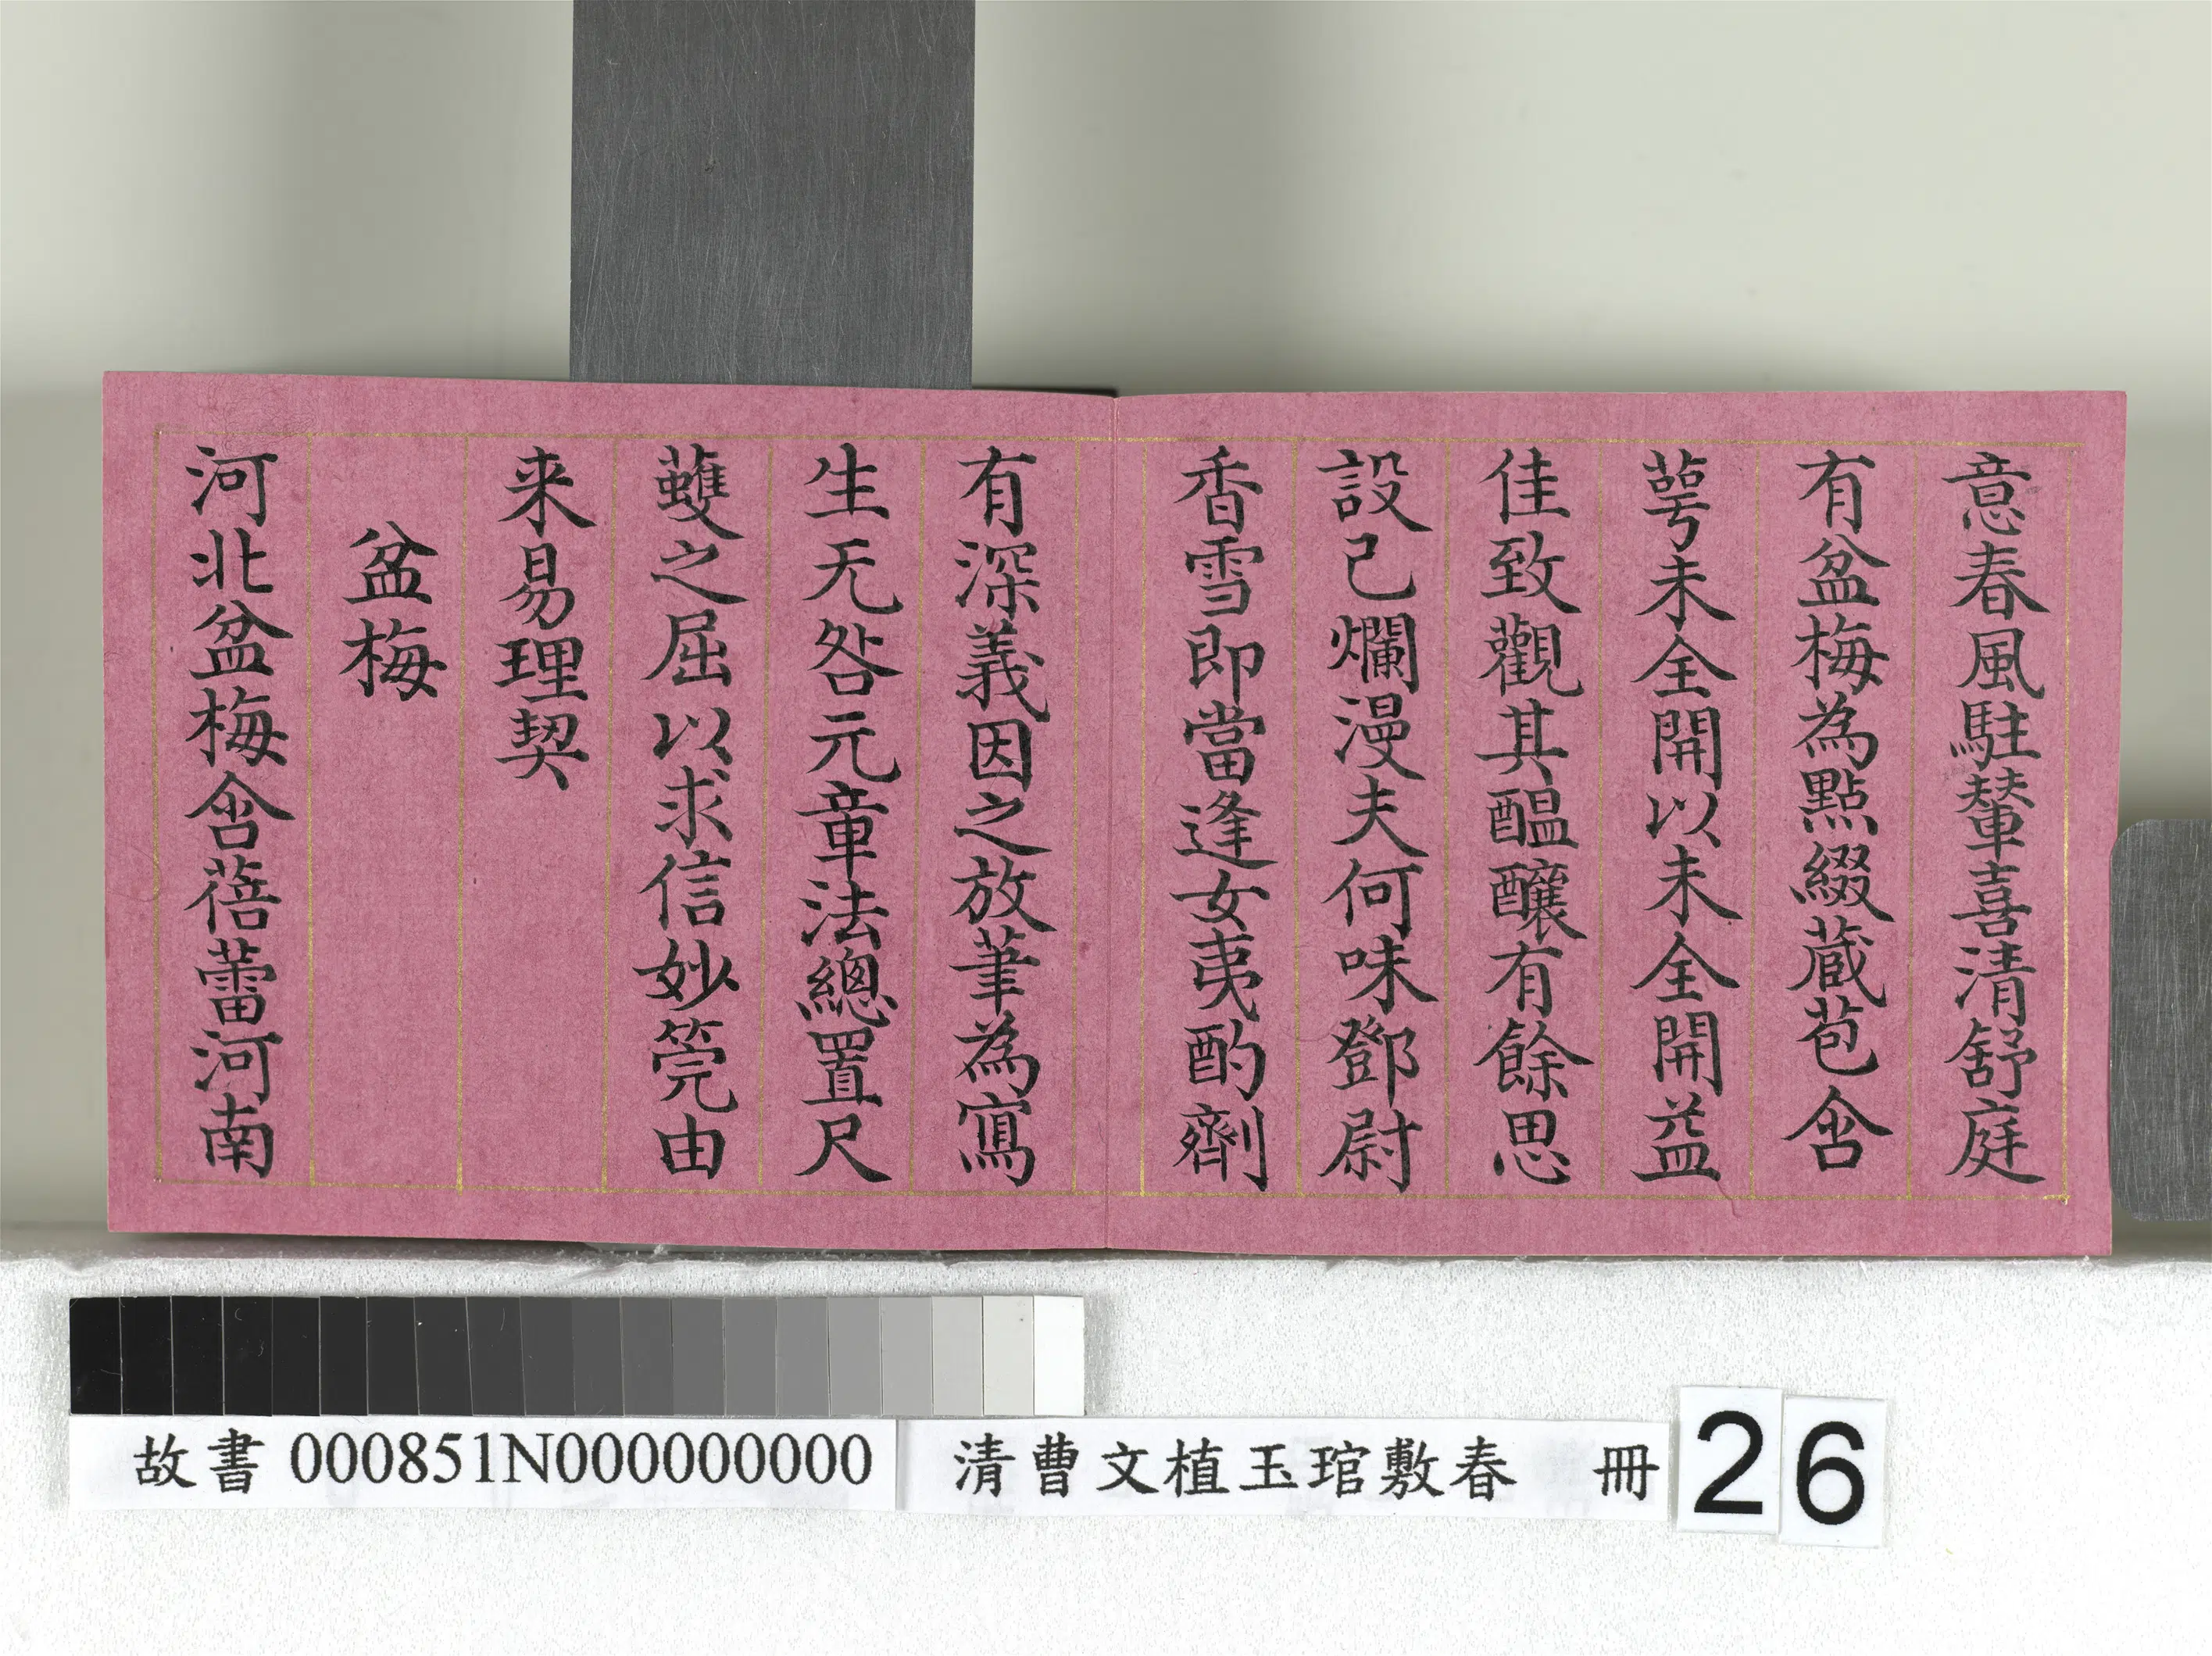 意春風駐輦喜清舒庭
有盆梅為點綴蔵苞含
萼未全開以未全開益
佳致觀其醖釀有餘思
設已爛漫夫何味鄧尉
香雪即當逢女夷酌劑
有深義因之放筆為寫
生无咎元章法總置尺
蠖之屈以求信妙筦由
来易理契
盆梅
河北盆梅含蓓蕾河南
故書 000851N000000000
清曹文植玉琯敷春 冊
26